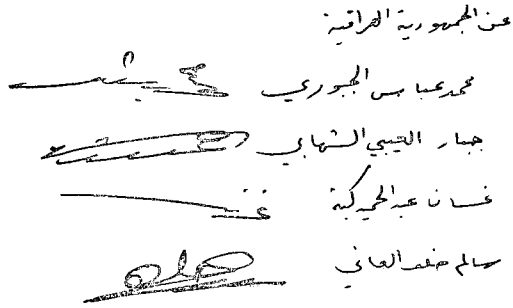 عن الجمهورية العراقية
محمد عباس الجبوري
جبار العيبي الشهابي
غسان عبد الحميد كبة
سالم خلف العاني